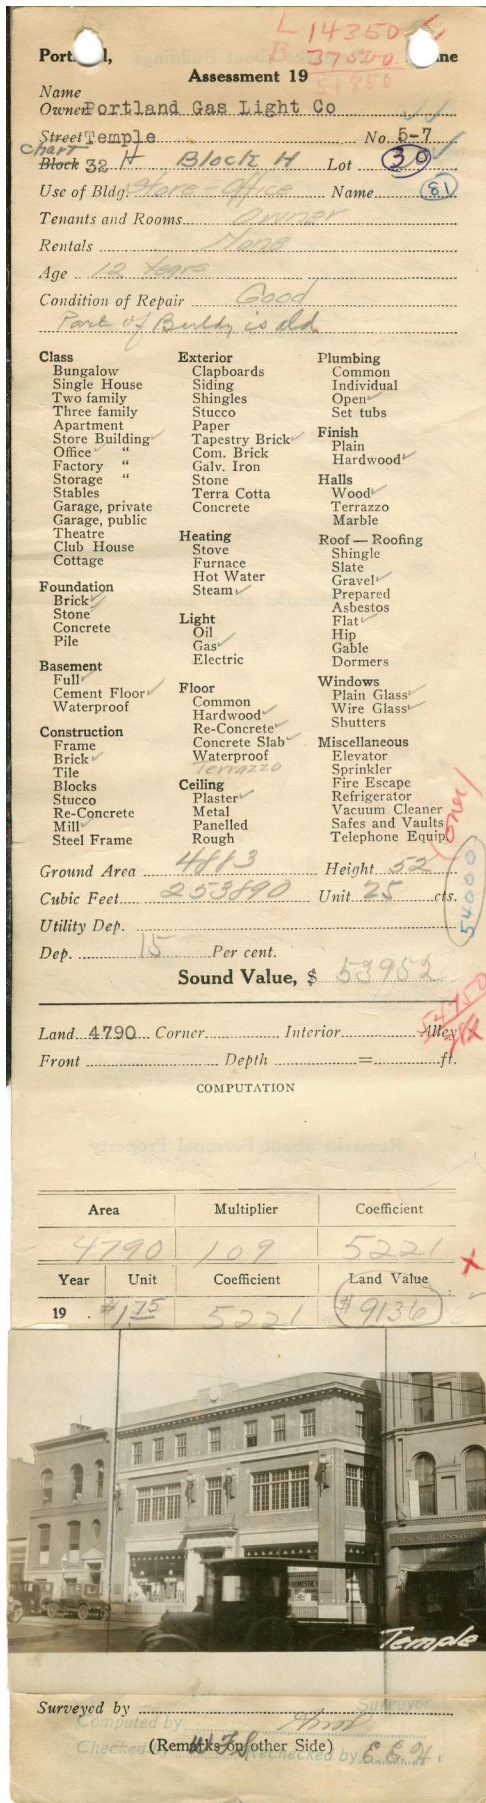 L 14350
B 37500
51850
Portland, Maine
Assessment 19
Name
Owner Portland Gas Light Co
Street Temple No. 5-7
Chart
Block 32 H Block H Lot 30
Use of Bldg. Store - Office Name 81
Tenants and Rooms Owner
Rentals None
Age 12 Years
Condition of Repair Good
Part of Building is old
Class
Bungalow
Single House
Two family
Three family
Apartment
Store Building ✓
Office " ✓
Factory "
Storage "
Stables
Garage, private
Garage, public
Theatre
Club House
Cottage
Foundation
Brick ✓
Stone ✓
Concrete
Pile
Basement
Full ✓
Cement Floor ✓
Waterproof
Construction
Frame
Brick ✓
Tile
Blocks
Stucco
Re-Concrete
Mill ✓
Steel Frame
Exterior
Clapboards
Siding
Shingles
Stucco
Paper
Tapestry Brick ✓
Com. Brick
Galv. Iron
Stone
Terra Cotta
Concrete
Heating
Stove
Furnace
Hot Water
Steam ✓
Light
Oil
Gas ✓
Electric
Floor
Common
Hardwood ✓
Re-Concrete ✓
Concrete Slab ✓
Waterproof
Terrazzo
Ceiling
Plaster ✓
Metal
Panelled
Rough
Plumbing
Common
Individual
Open ✓
Set tubs
Finish
Plain
Hardwood ✓
Halls
Wood ✓
Terrazzo
Marble
Roof — Roofing
Shingle
Slate
Gravel ✓
Prepared
Asbestos
Flat ✓
Hip
Gable
Dormers
Windows
Plain Glass ✓
Wire Glass ✓
Shutters
Miscellaneous
Elevator
Sprinkler
Fire Escape
Refrigerator
Vacuum Cleaner
Safes and Vaults
Telephone Equip.
(over)
54000
Ground Area 4883 Height 52
Cubic Feet 253890 Unit 25 cts.
Utility Dep.
Dep. 15 Per cent.
Sound Value, $ 53952
Land 4790 Corner Interior Alley
Front Depth = ft.
COMPUTATION
Area Multiplier Coefficient
4790 109 5221
Year Unit Coefficient Land Value
19 $1.75 5221 $9136
Temple
Surveyed by Surveyor
Computed by
(Remarks on other Side)
Checked by W.F.S. Rechecked by E.E.H.